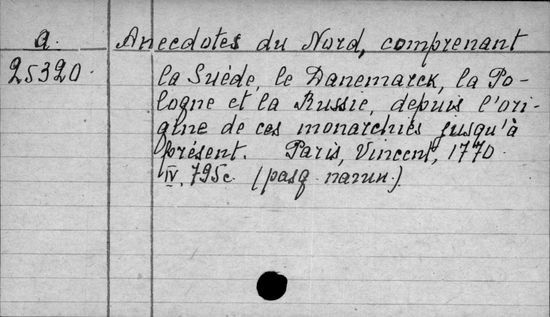 a.
25320.
Anecdotes du Nord, comprenant
la Suéde, le Danemarck, la Po-
logne et la Russie, depuis l'ori-
gine de ces monarchies jusqu'à
présent. Paris, Vincent, 1770.
IV, 795c. (pasq нагип.)